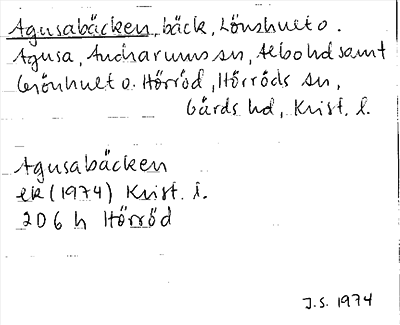 Agusabäcken, bäck, Lönshult o.
Agusa, Andrarums sn, Albo hd samt
Grönhult o. Hörröd, Hörröds sn,
Gärds hd, Krist. l.
Agusabäcken
ek (1974) Krist. l.
206 h Hörröd
J.S. 1974